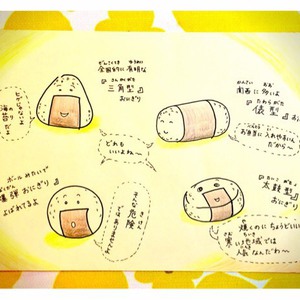 ぜんこくてき ゆうめい
全国的に有名な
さんかくがた
『三角型』
おにぎり
かんさい おお
関西に多いよ
たわらがた
『俵型』
おにぎり
お弁当に入れやすいん
だから〜
どれも
いいよね〜
ボールみたいで
爆弾おにぎりと
よばれてるよ
そんな危険
ではありませんよ
たいこがた
『太鼓型』
おにぎり
焼くのにちょうどいい
寒い地域では
人気なんだわ〜